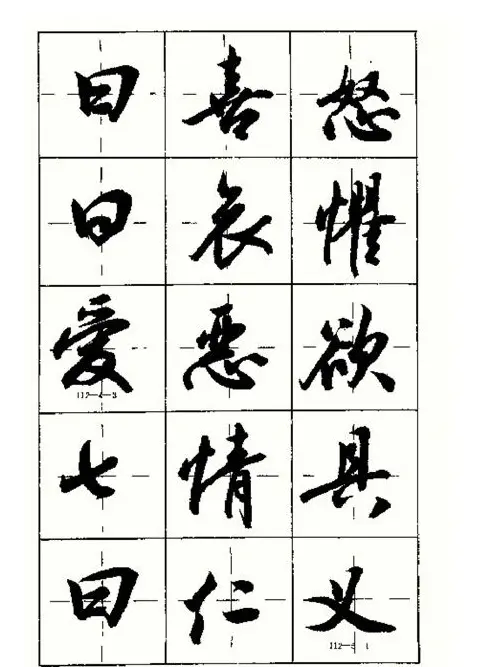 曰喜怒
曰哀惧
爱恶欲
112-4-3
七情具
曰仁义
112-5 1